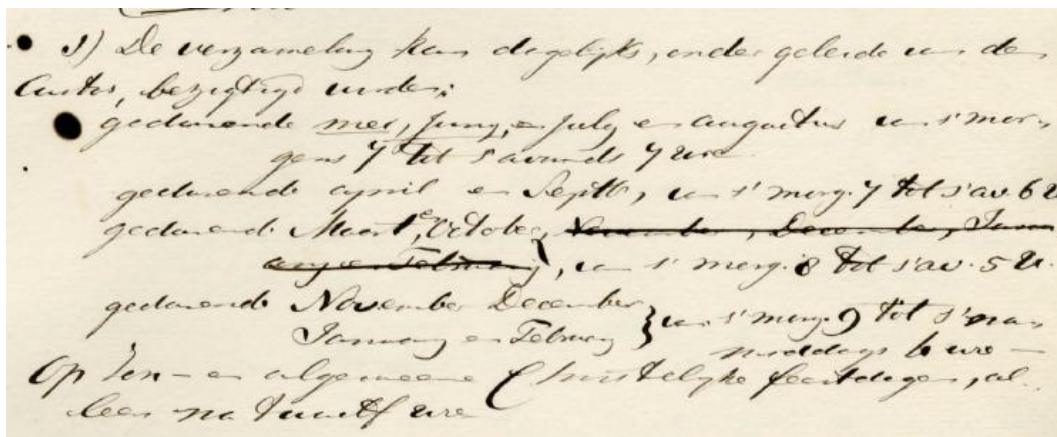 3) De verzameling kan dagelijks, onder geleide van den
Custos, bezigtigd worden:
gedurende mei, juny, en july en augustus van s'mor-
gens 7 tot s'avonds 7 ure
gedurende april en Septb, van s' morg. 7 tot s'av. 6 u
gedurende Maart, en October, November, December, Janu
ary en February, van s' morg. 8 tot s'av. 5 u.
gedurende November December
January en February } van s' morg. 9 tot s'na-
middags 4 ure —
Op Zon- en algemeene Christelyke feestdagen, al-
leen na twaalf ure